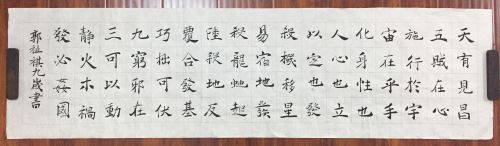 天有見昌
五賊在心
施行於宇
宙在乎手
化身性也
人心也立
以定也發
殺機移星
易宿地發
殺龍虵起
陸殺地反
覆合發基
巧拙可伏
九竅邪在
三可以動
靜火木禍
發必姦國
郭祖祺九歲書